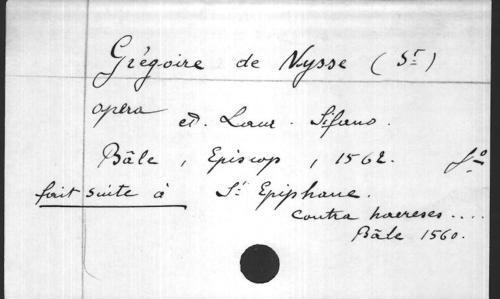 Grégoire de Nysse (St)
opera
ed. Laur. Sifano.
Bâle, Episcop, 1562. fo
fait suite à St Epiphane.
Contra haereses....
Bâle 1560.